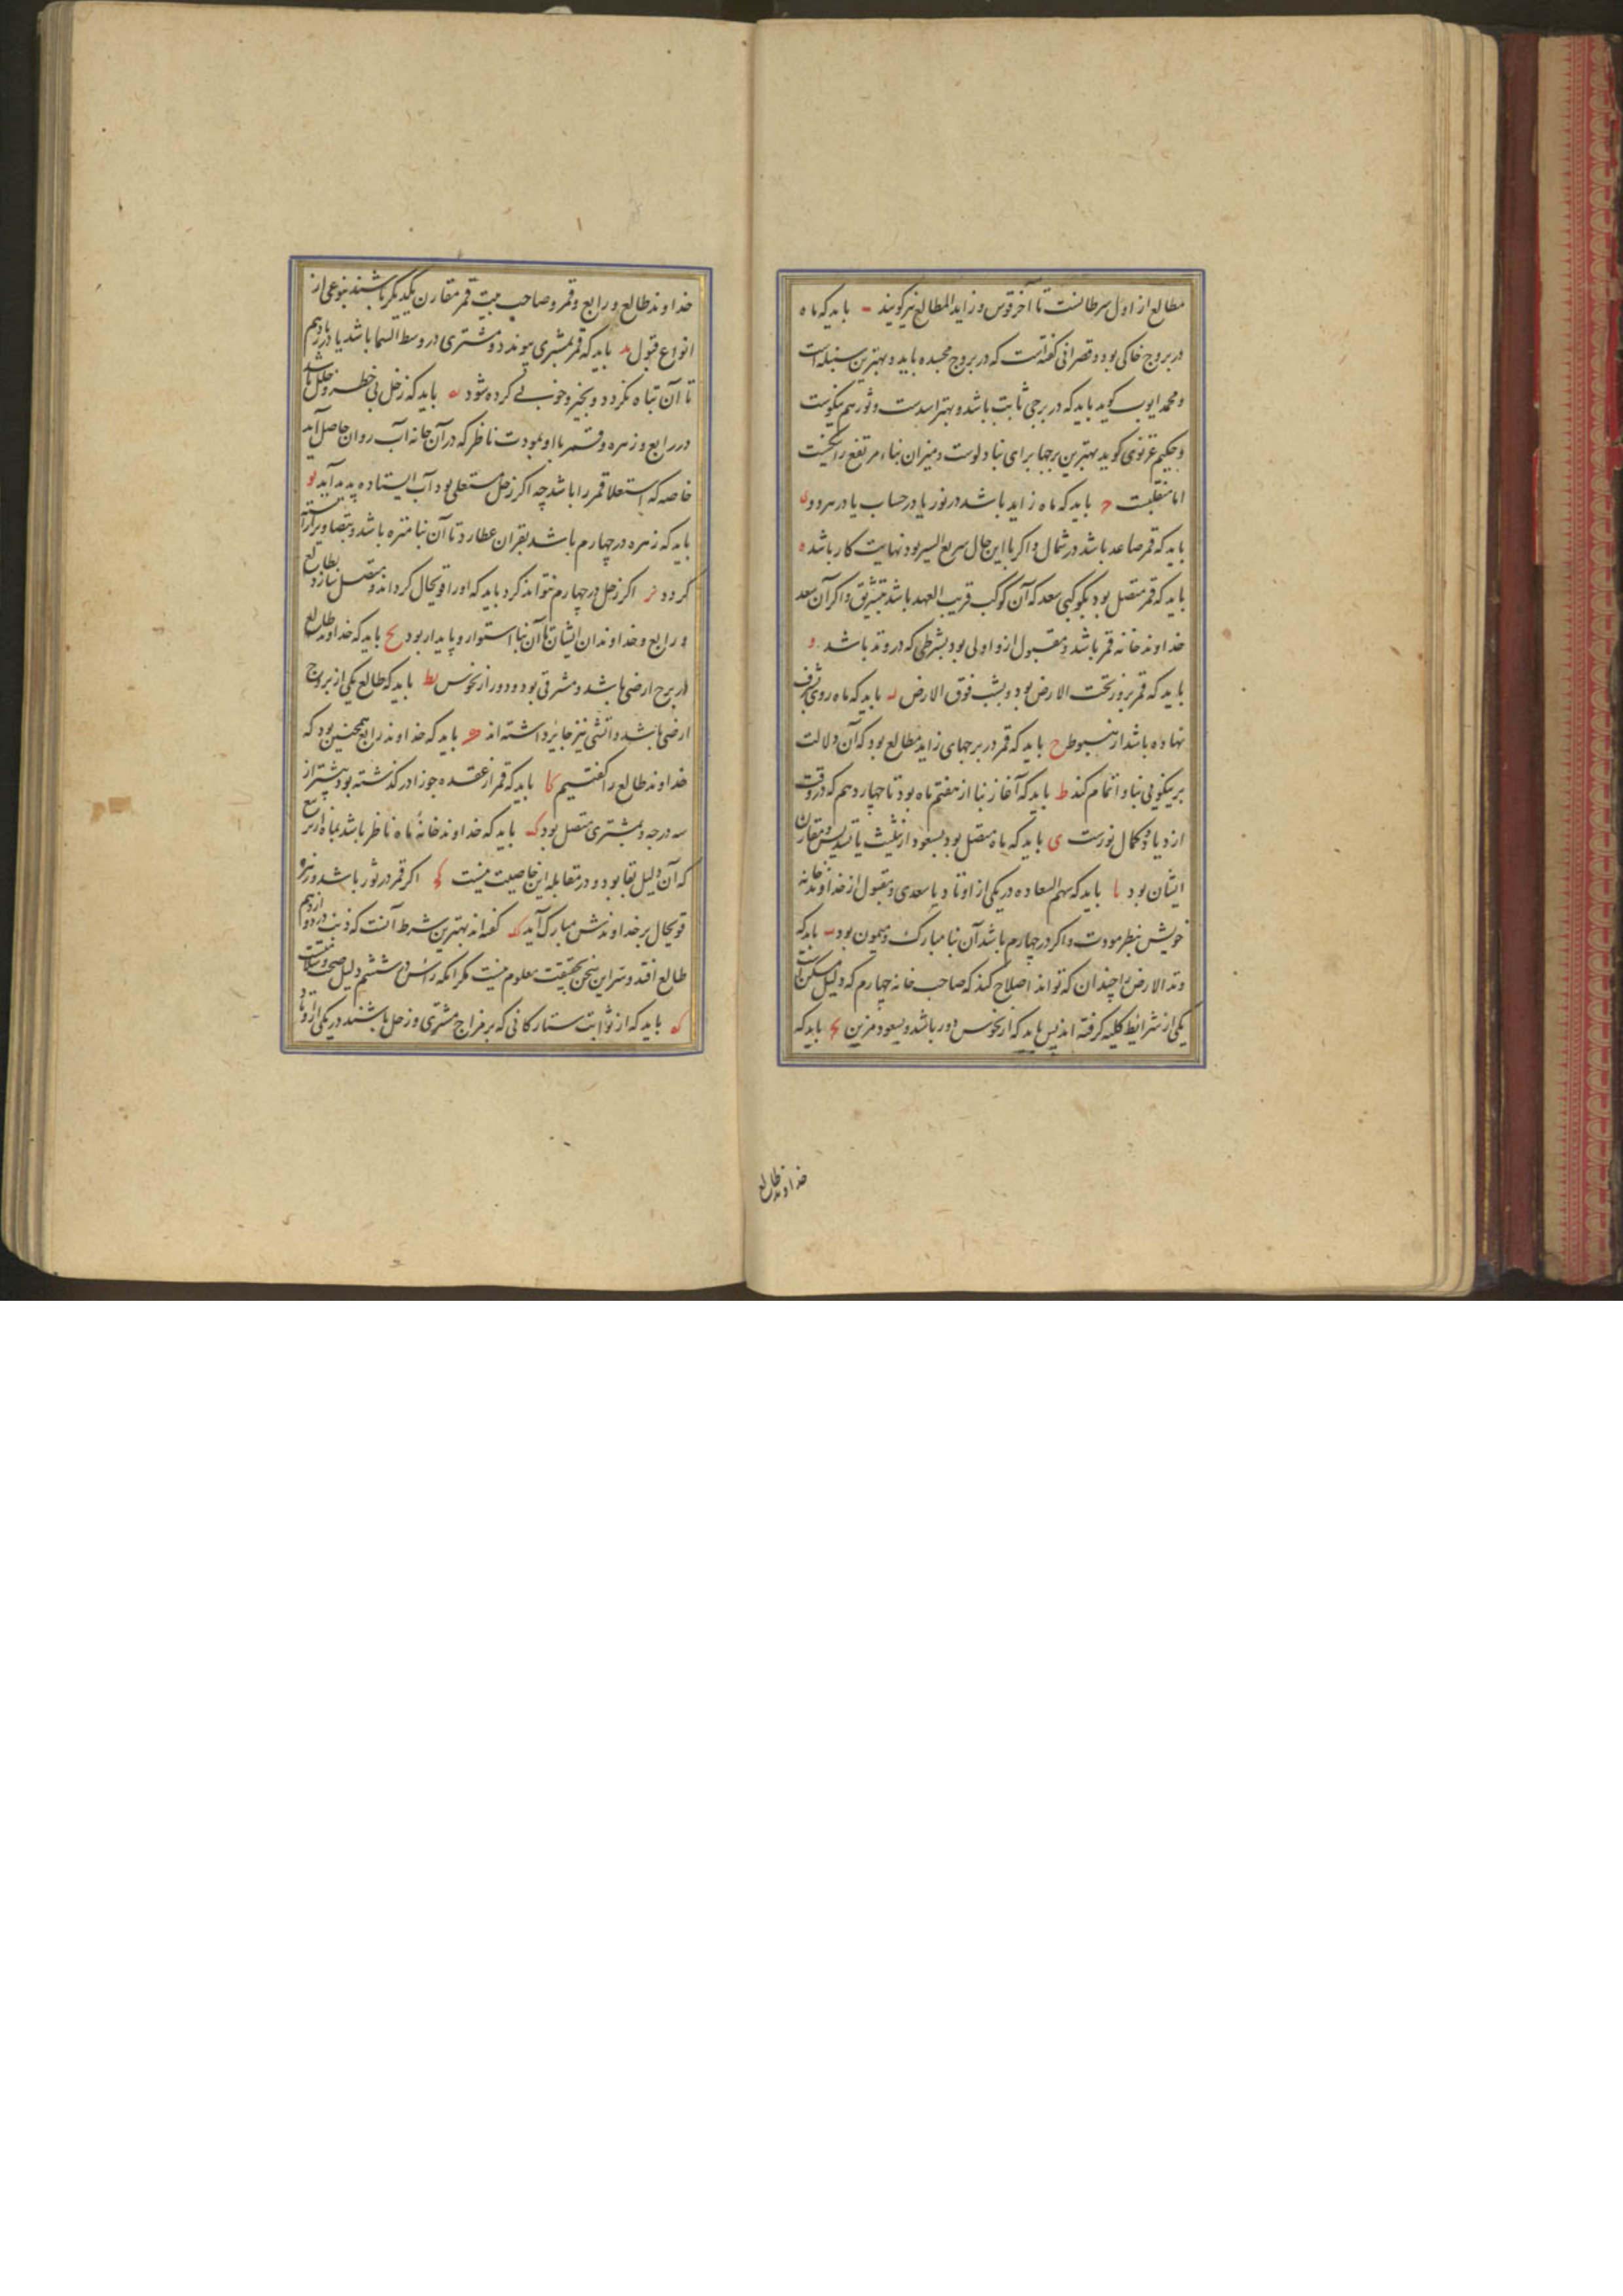 مطالع از اول سرطانست تا آخر قوس و زاید المطالع نیز گویند ب باید که ماه
در بروج خاکی بود و قصرانی گفته است که در بروج مجسده باید و بهترین سنبله است
و محمد ایوب گوید باید که در برجی ثابت باشد و بهتر اسدست و ثور هم نیکوست
و حکیم غزنوی گوید بهترین برجها برای بنا دلوست و میزان بناء مرتفع را نیکست
اما منقلبست ح باید که ماه زاید باشد در نور یا در حساب یا در هر دو د
باید که قمر صاعد باشد در شمال و اگر با این حال سریع السیر بود نهایت کار باشد ه
باید که قمر متصل بود بکوکبی سعد که آن کوکب قریب العهد باشد بتشریق و اگر آن سعد
خداوند خانه قمر باشد و مقبول ازو اولی بود بشرطی که در وتد باشد و
باید که قمر بروز تحت الارض بود و بشب فوق الارض ر باید که ماه روی بشرف
نهاده باشد از هبوط ح باید که قمر در برجهای زاید مطالع بود که آن دلالت
بر نیکویی بنا و اتمام کند ط باید که آغاز بنا از هفتم ماه بود تا چهاردهم که در وقت
ازدیاد و کمال نورست ی باید که ماه متصل بود بسعود از تثلیث یا تسدیس و مقارن
ایشان بود یا باید که سهم السعاده در یکی از اوتاد یا سعدی و مقبول از خداوند خانه
خویش بنظر مودت و اگر در چهارم باشد آن بنا مبارک و میمون بود یب باید که
وتد الارض را چندان که تواند اصلاح کند که صاحب خانه چهارم که دلیل مسکن است
یکی از شرایط کلیه گرفته اند پس باید که از نحوس دور باشد و بسعود مزین یج باید که
خداوند طالع
خداوند طالع و رابع و قمر و صاحب بیت قمر مقارن یکدیگر باشند بنوعی از
انواع قبول ید باید که قمر بمشتری پیوندد و مشتری در وسط السما باشد یا در یازدهم
تا آن تباه نگردد و بخیر و خوبی کرده شود یه باید که زحل بی خطر و خلل باشد
در رابع و زهره و قمر با او بمودت ناظر که در آن خانه آب روان حاصل آید
خاصه که استعلا قمر را باشد چه اگر زحل مستعلی بود آب ایستاده پدید آید یو
باید که زهره در چهارم باشد بقران عطارد تا آن بنا منزه باشد و بتصاویر آراسته
گردد یز اگر زحل در چهارم نتواند کرد باید که او را قویحال گرداند و متصل سازد بطالع
و رابع و خداوندان ایشان تا آن بنا استوار و پایدار بود یح باید که خداوند طالع
در برج ارضی باشد و مشرقی بود و دور از نحوس یط باید که طالع یکی از بروج
ارضی باشد و آتشی نیز جایز داشته اند ک باید که خداوند رابع همچنین بود که
خداوند طالع را گفتیم کا باید که قمر از عقده جوزا در گذشته بود بیشتر از
سه درجه و بمشتری متصل بود کب باید که خداوند خانهٔ ماه ناظر باشد بماه از تربیع
که آن دلیل بقا بود و در مقابله این خاصیت نیست کج اگر قمر در ثور باشد و زهره
قویحال بر خداوندش مبارک آید کد گفته اند بهترین شرط آنست که ذنب در دوازدهم
طالع افتد و سر این سخن بحقیقت معلوم نیست مگر آنکه راس در ششم دلیل صحت و سلامتست
که باید که از ثوابت ستارگانی که بر مزاج مشتری و زحل باشند در یکی از اوتاد